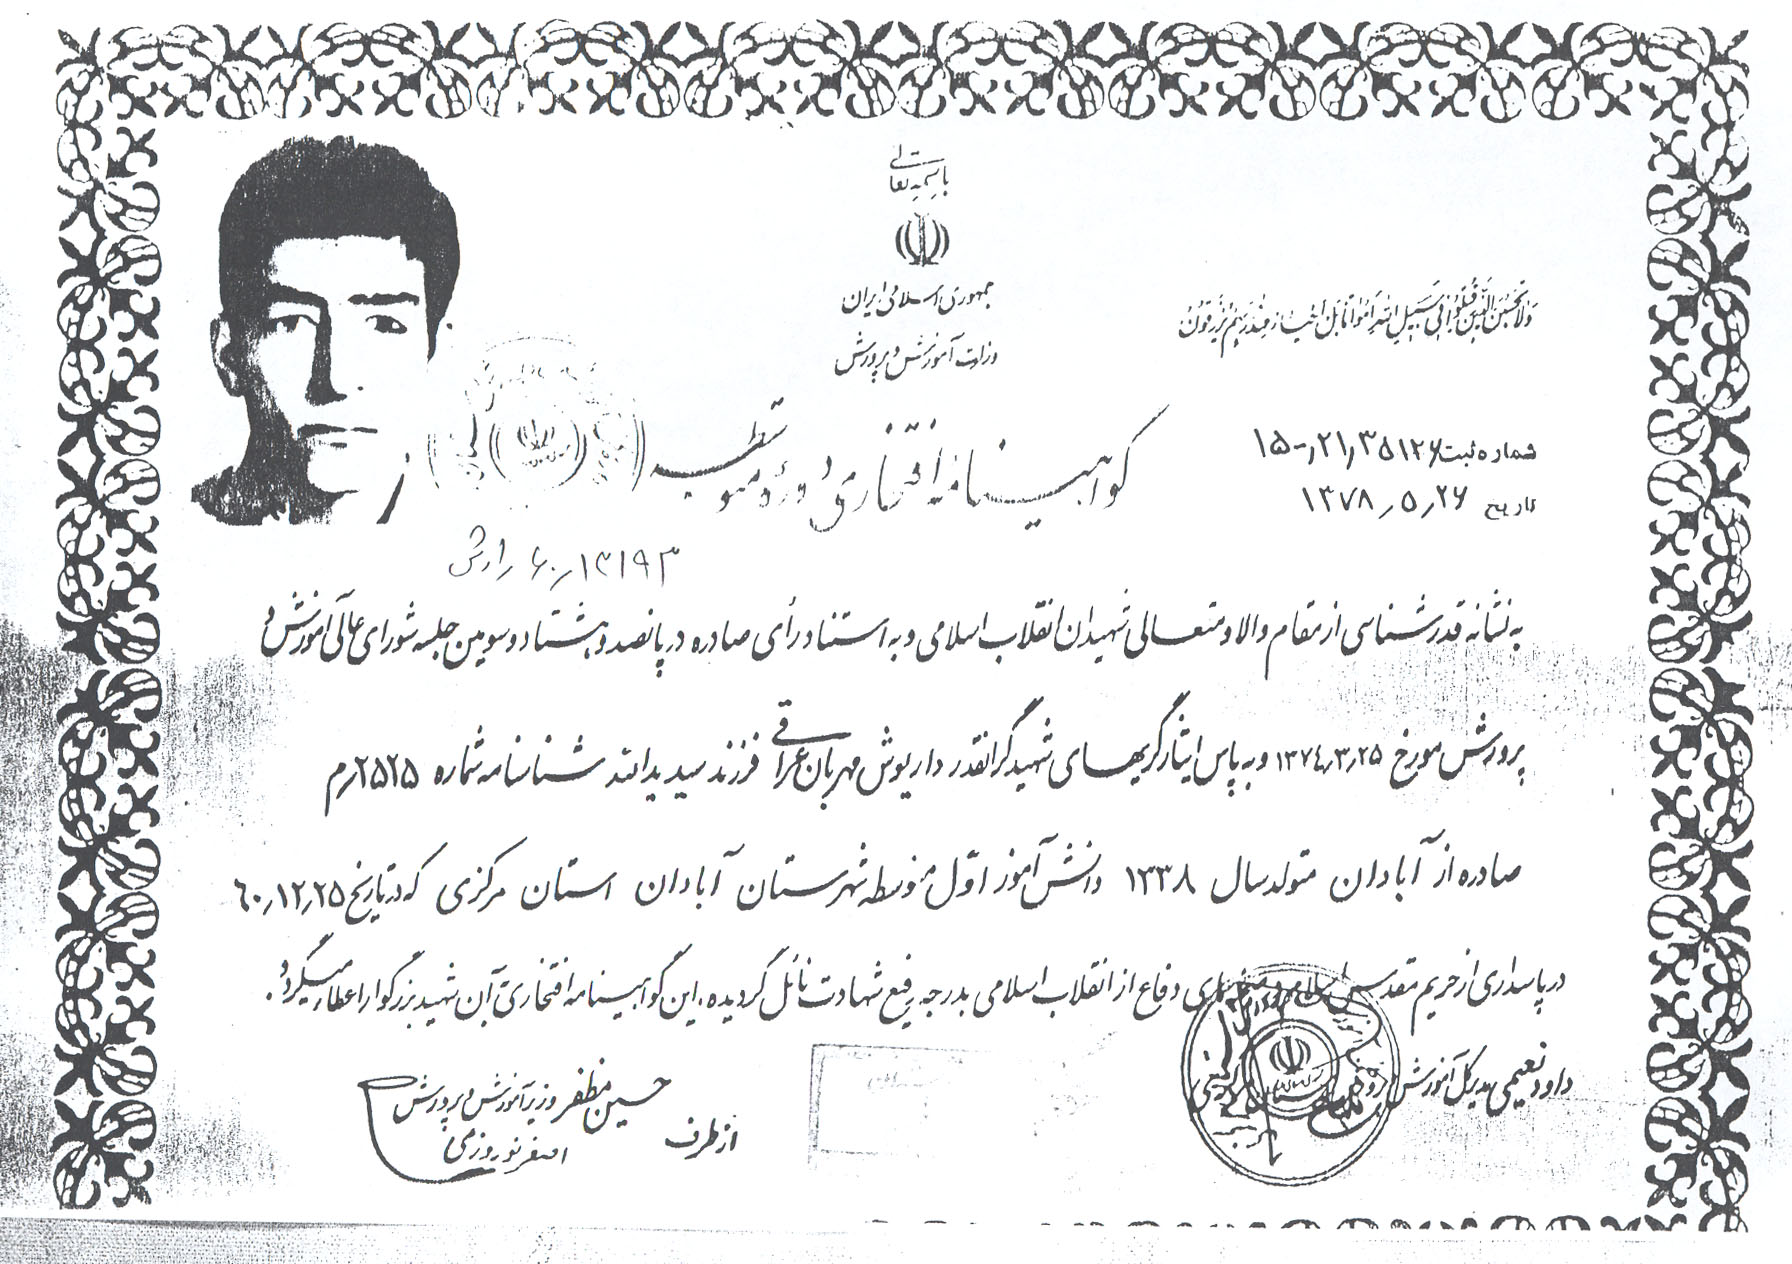 باسمه تعالی
جمهوری اسلامی ایران
وزارت آموزش و پرورش
ولا تحسبن الذین قتلوا فی سبیل الله امواتا بل احیاء عند ربهم یرزقون
شماره ثبت
تاریخ ۱۳۷۸٫۵٫۲۶
گواهینامه افتخاری دوره متوسطه
۶۰٫۱۳۱۹۳
به نشانه قدرشناسی از مقام والا و متعالی شهیدان انقلاب اسلامی و به استناد رأی صادره در پانصد و هشتاد و سومین جلسه شورای عالی آموزش و
پرورش مورخ ۱۳۷۴٫۳٫۲۵ و به پاس ایثارگریهای شهید گرانقدر داریوش مهربان عراقی فرزند سید یدالله شناسنامه شماره ۲۵۲۵٫م
صادره از آبادان متولد سال ۱۳۳۸ دانش آموز اول متوسطه شهرستان آبادان استان مرکزی که در تاریخ ۶۰٫۱۲٫۲۵
در پاسداری از حریم مقدس اسلام و دفاع از انقلاب اسلامی بدرجه رفیع شهادت نائل گردیده، این گواهینامه افتخاری آن شهید بزرگوار اعطاء میگردد.
داود نعیمی مدیرکل آموزش و پرورش
از طرف
حسین مظفر وزیر آموزش و پرورش
اصغر نوروزی